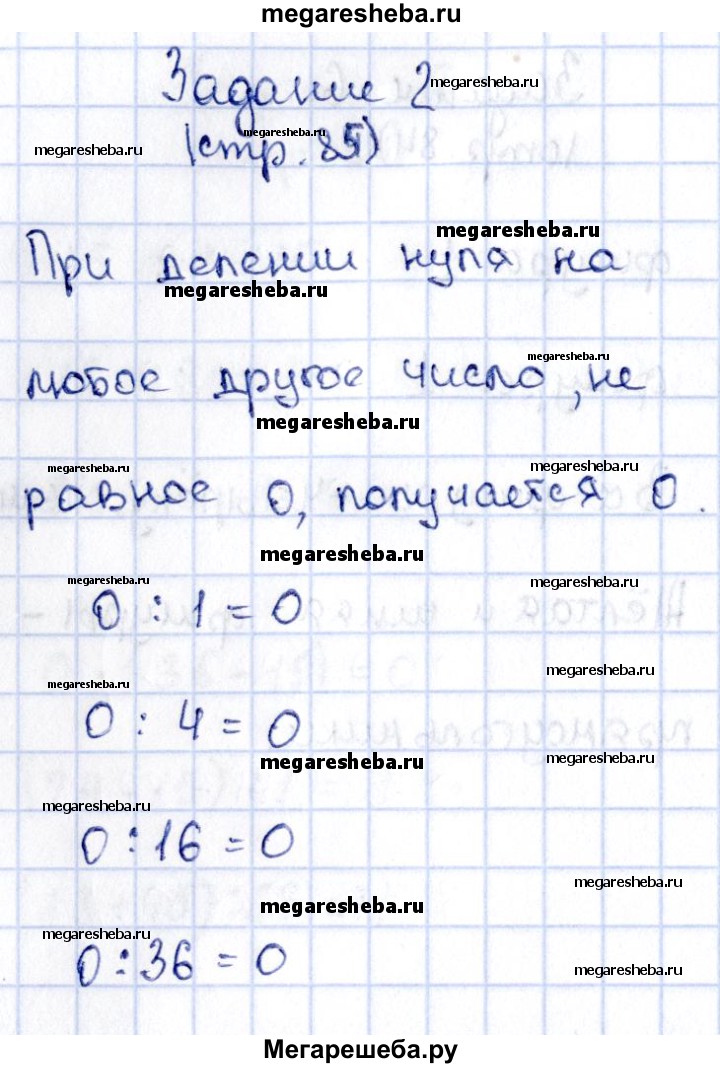 megaresheba.ru
Задание 2
megaresheba.ru
megaresheba.ru
megaresheba.ru
(стр. 85)
megaresheba.ru
При делении нуля на
megaresheba.ru
megaresheba.ru
любое другое число, не
megaresheba.ru
megaresheba.ru
megaresheba.ru
равное 0, получается 0.
megaresheba.ru
megaresheba.ru
megaresheba.ru
0 : 1 = 0
megaresheba.ru
megaresheba.ru
0 : 4 = 0
megaresheba.ru
megaresheba.ru
megaresheba.ru
0 : 16 = 0
megaresheba.ru
megaresheba.ru
megaresheba.ru
0 : 36 = 0
megaresheba.ru
Мегарешеба.ру